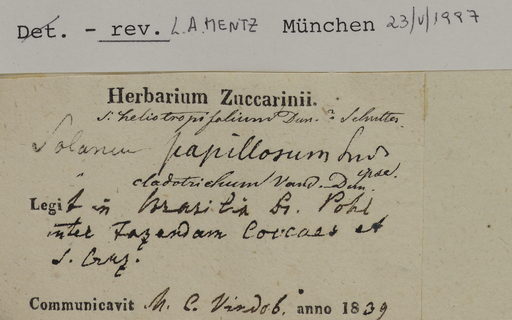 Det. - rev. L.A.MENTZ München 23/V/1997
Herbarium Zuccarinii.
S. heliotropifolium Dun.
Solanum papillosum
ipse.
cladotrichum Vand. Dun.
Legit in Brasilia Dr. Pohl
inter Fazendam Corcaes et
S. Cruz.
Communicavit M. C. Vindob. anno 1839